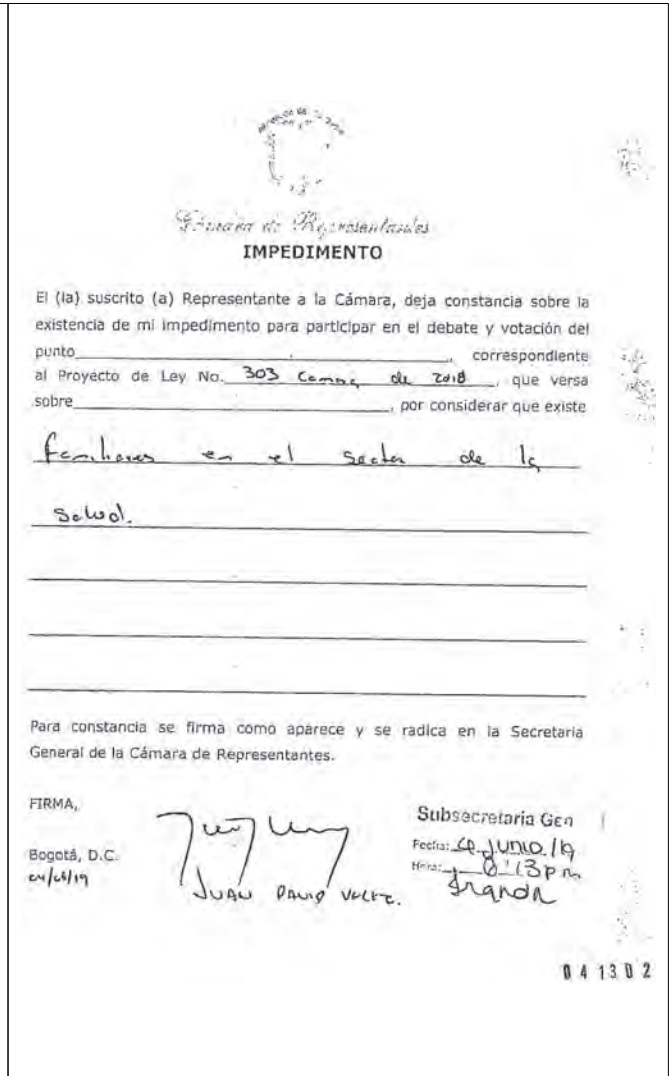 Cámara de Representantes
IMPEDIMENTO
El (la) suscrito (a) Representante a la Cámara, deja constancia sobre la
existencia de mi impedimento para participar en el debate y votación del
punto__________, correspondiente
al Proyecto de Ley No. 303 Camara de 2018, que versa
sobre__________, por considerar que existe
familiares en el sector de la
Salud.
Para constancia se firma como aparece y se radica en la Secretaria
General de la Cámara de Representantes.
FIRMA,
Bogotá, D.C.
04/06/19
JUAN DAVID VELEZ.
Subsecretaria Gen
Fecha: 4 Junio/19
Hora: :13pm
041302